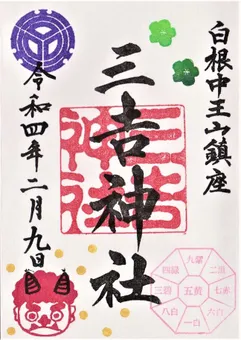 白根中王山鎮座
三吉神社
令和四年二月九日
九紫
二黒
七赤
六白
一白
八白
三碧
四緑
五黄